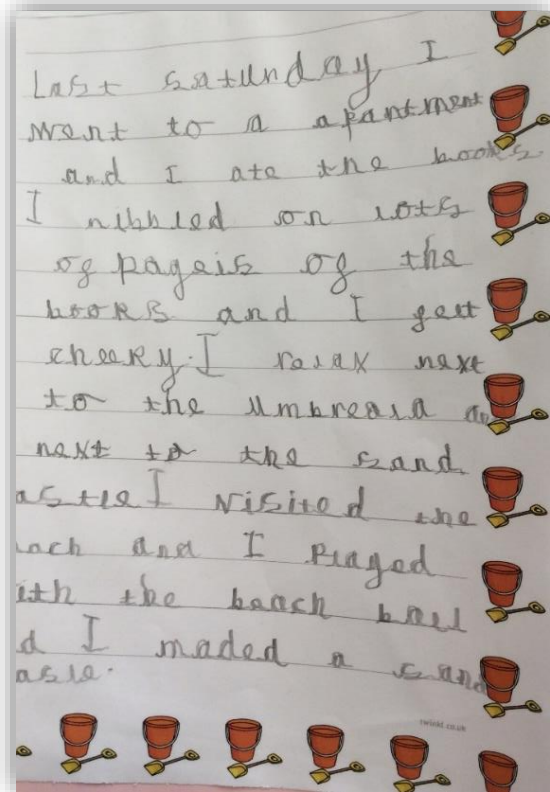 Last satunday I
went to a apantment
and I ate the books.
I nibbled on lots
of pageis of the
books and I gett
cheeky. I relax next
to the umbreala an
next to the sand
astle I visited the
ach and I Played
ith the beach ball
d I maded a sand
asle.
twinkl.co.uk